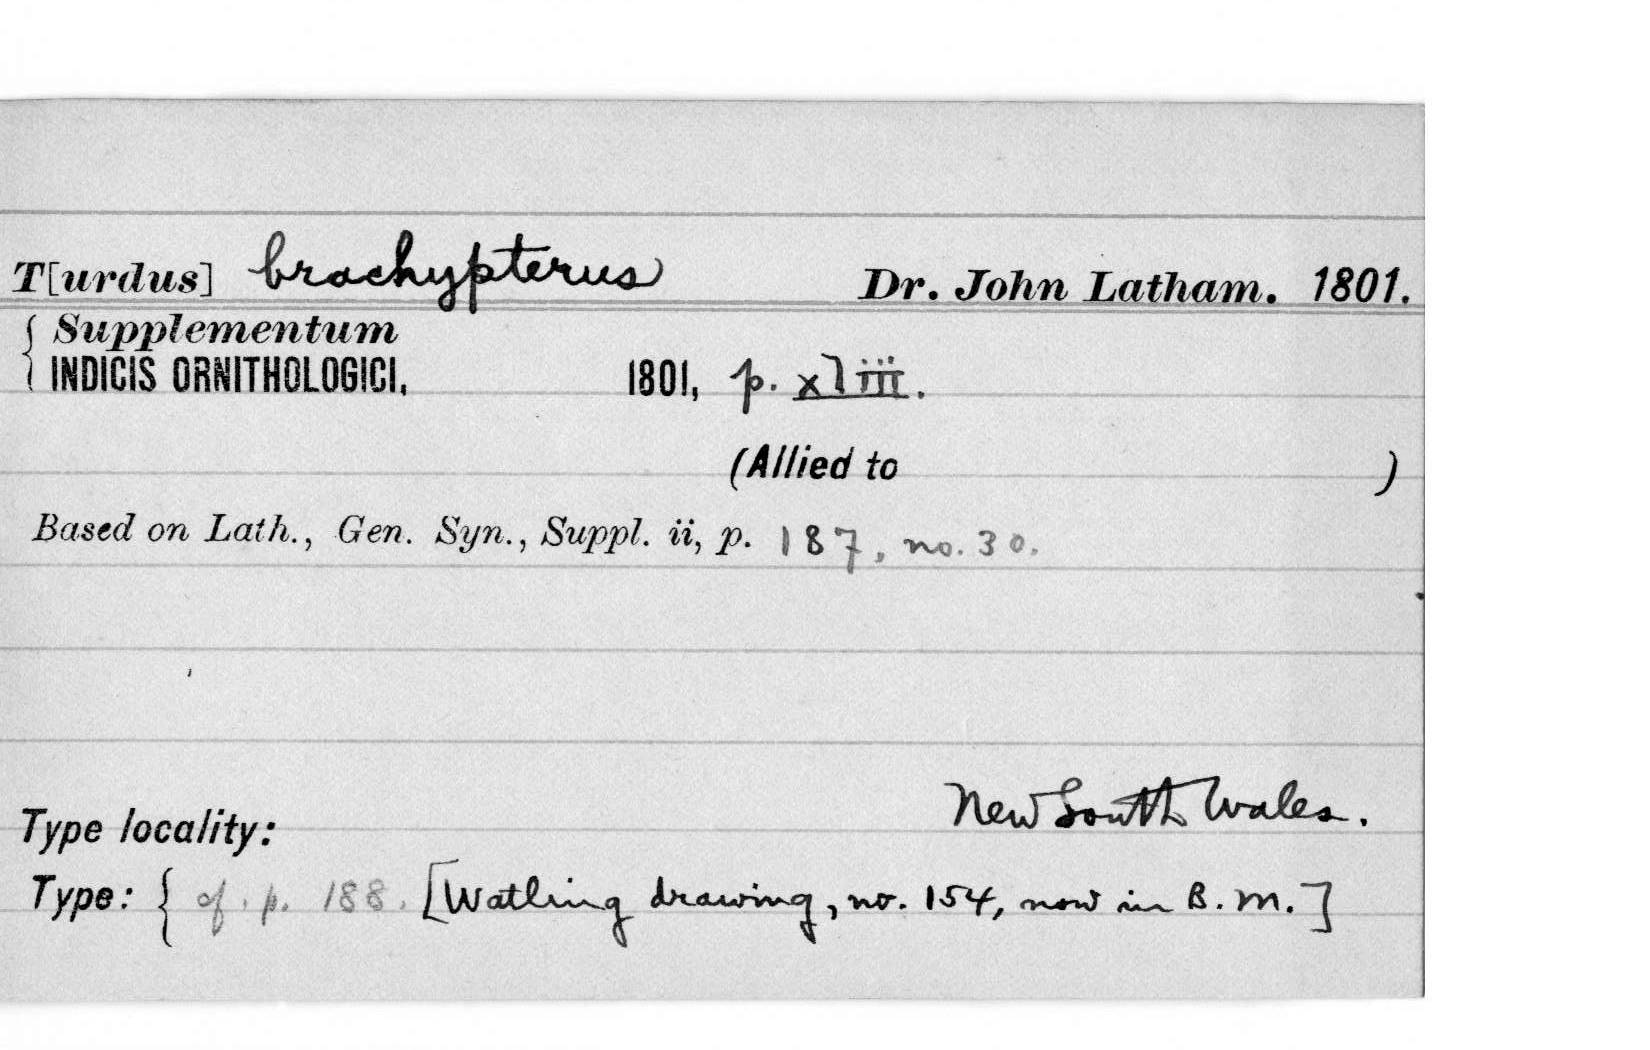 T[urdus] brachypterus Dr. John Latham. 1801.
{ Supplementum
INDICIS ORNITHOLOGICI, 1801, p. xliii.
(Allied to )
Based on Lath., Gen. Syn., Suppl. ii, p. 187, no. 30.
Type locality: New South Wales.
Type: { cf. p. 188. [Watling drawing, no. 154, now in B. M.]